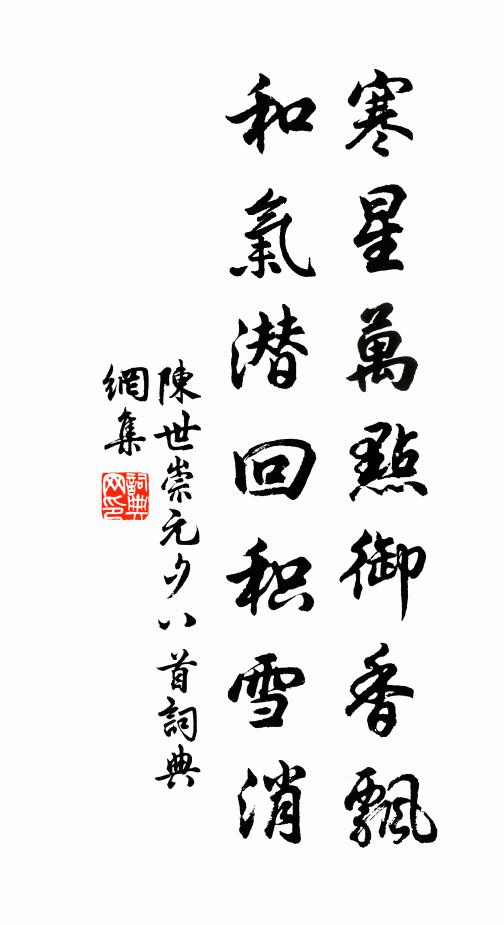 寒星萬點御香飄
和氣潜回积雪消
陳世崇元夕八首詞典
網集
詞典
网印